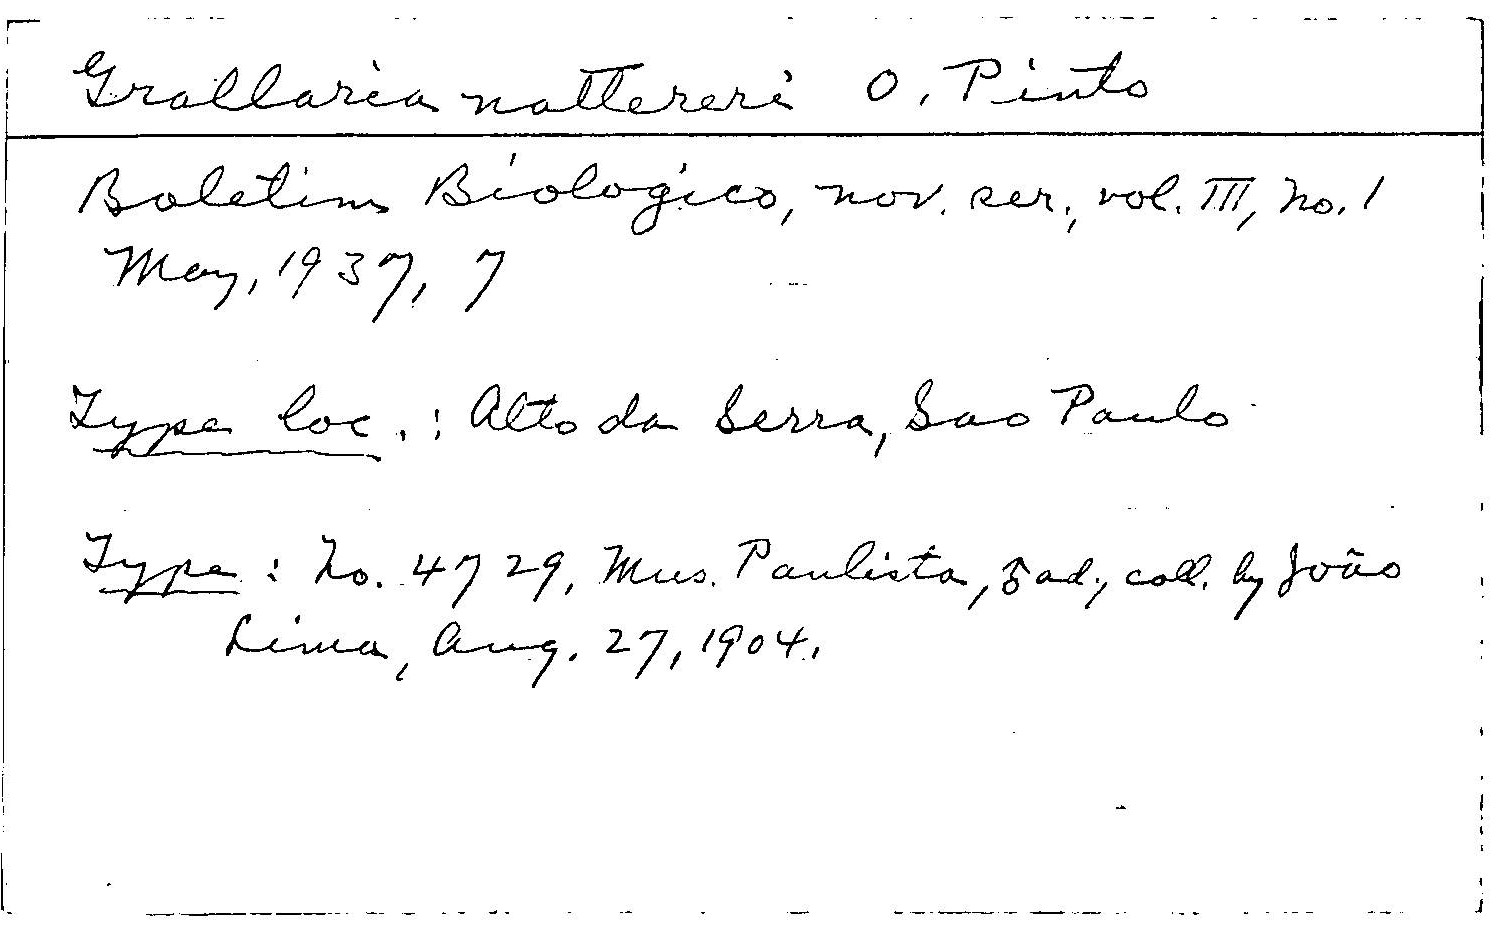 Grallaria nattereri O. Pinto
Boletim Biológico, nov. ser., vol. III, no. 1
May, 1937, 7
Type loc.: Alto da Serra, Sao Paulo
Type: No. 4729, Mus. Paulista, ad., coll. by João
Lima, Aug. 27, 1904.